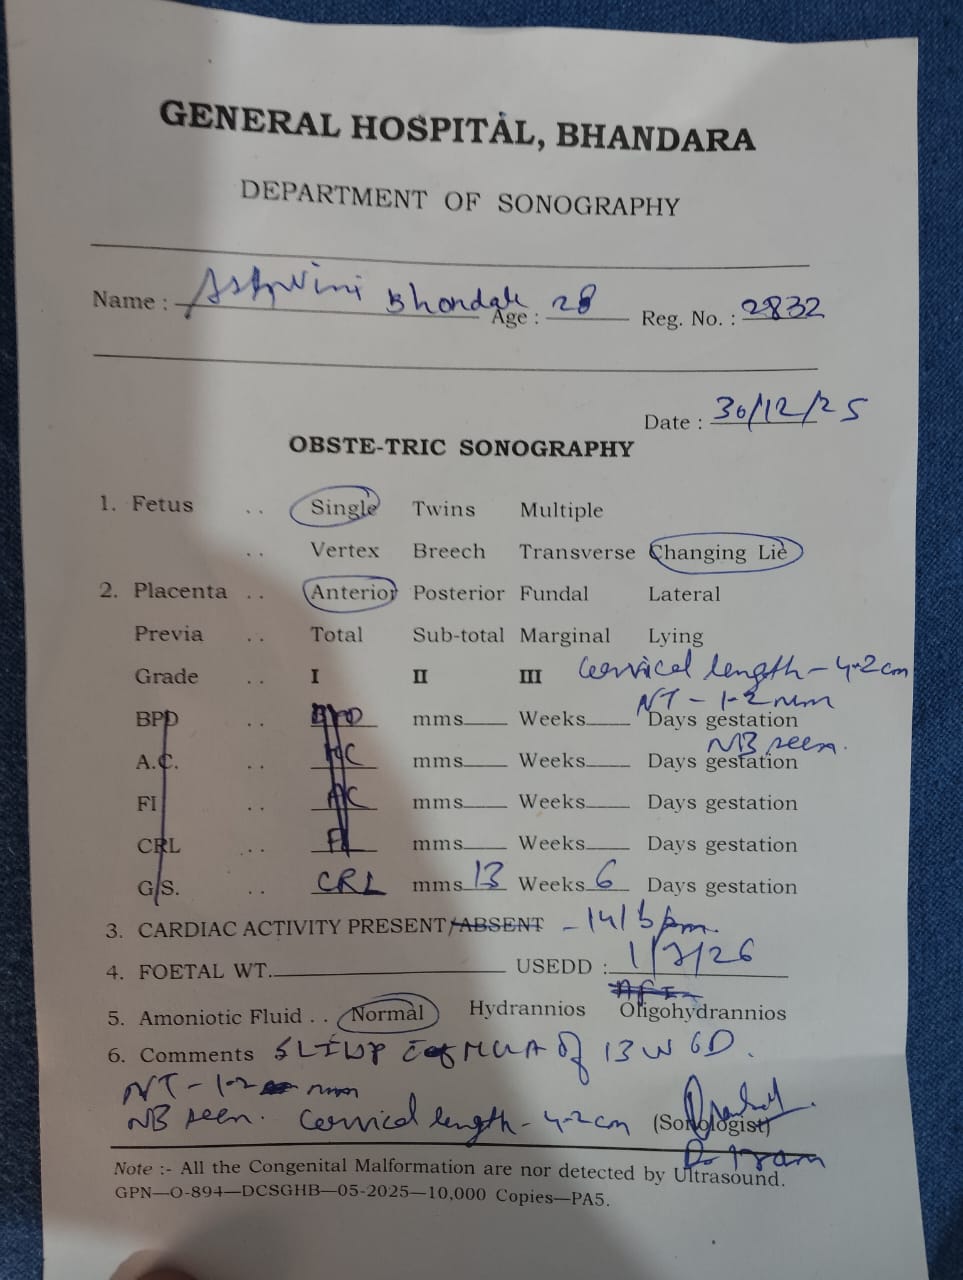 GENERAL HOSPITAL, BHANDARA
DEPARTMENT OF SONOGRAPHY
Name : Ashwini Bhondale Age : 28 Reg. No. : 2832
Date : 30/12/25
OBSTE-TRIC SONOGRAPHY
1. Fetus .. Single Twins Multiple
.. Vertex Breech Transverse Changing Lie
2. Placenta .. Anterior Posterior Fundal Lateral
Previa .. Total Sub-total Marginal Lying
Grade .. I II III Cervical length - 4.2 cm
NT - 1.2 mm
BPD .. BPD mms Weeks Days gestation
NB seen.
A.C. .. HC mms Weeks Days gestation
FI .. AC mms Weeks Days gestation
CRL .. FL mms Weeks Days gestation
G.S. .. CRL mms 13 Weeks 6 Days gestation
3. CARDIAC ACTIVITY PRESENT/ABSENT - 141 bpm.
4. FOETAL WT. USEDD : 1/7/26
AFI
5. Amoniotic Fluid .. Normal Hydrannios Oligohydrannios
6. Comments SLIUP of MUA of 13 W 6D.
NT - 1.2 mm
NB seen. Cervical length - 4.2 cm (Sonologist)
Note :- All the Congenital Malformation are nor detected by Ultrasound.
GPN—O-894—DCSGHB—05-2025—10,000 Copies—PA5.